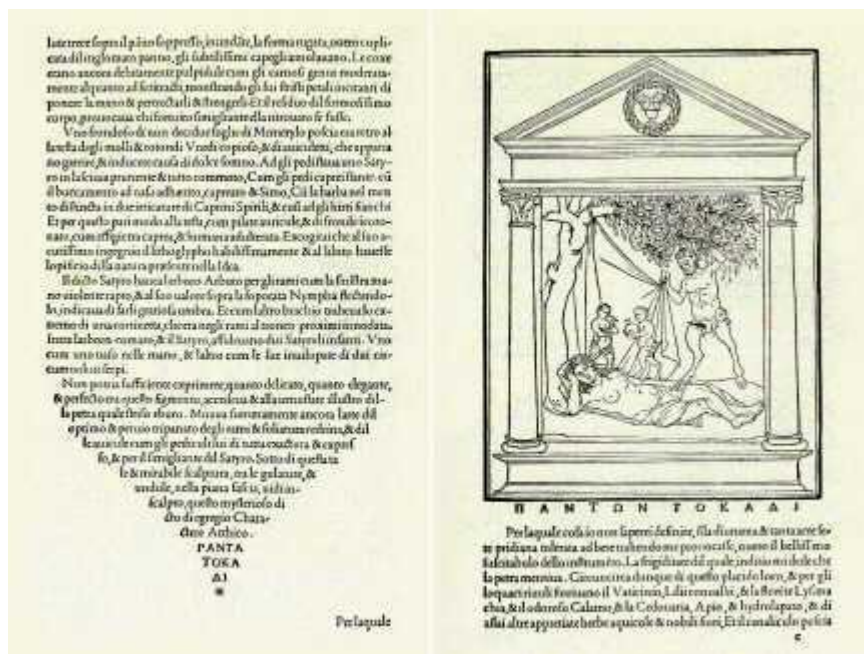 late trece sopra il pano soppresso, inundate, la forma rugata, overo cupli-
cata dil inglomato panno, gli subtilissimi capegli æmulavano. Le coxe
erano ancora debitamente pulpidule cum gli carnosi genui moderata-
mente alquanto ad se ritracti, monstrando gli sui stricti petioli incitanti di
ponere la mano & pertractarli & strengerli. Et il residuo dil formosissimo
corpo, provocava chi
Uno frondoso & non deciduo di foglie di Memerylo
la testa degli molli & rotondi Unedi copioso, & di aviculeti, che apparia-
no garrire, & inducere causa di dolce somno. Ad gli pedi stava uno Saty-
ro in lascivia pruriente & tutto commoto, Cum gli pedi caprei stante. cū
il buccamento ad naso adhærito, capreato & Simo, Cū la barba nel men
to distincta in due irricature di Caprini Spirili, & cusi ad gli hirti fianchi
Et per questo pari modo alla testa, cum pilate auricule, & di fronde incoro-
nato, cum effigie tra caprea, & humana adulterata. Excogitai che al suo a-
cutissimo ingegnio il lithoglypho habilissimamente & al libito havesse
lopificio di la natura præsente nella Idea.
Il dicto Satyro havea larboro Arbuto per gli rami cum la sinistra ma-
no violente rapto, & al suo valore sopra la soporata Nympha flectendo-
lo, indicava di farli gratiosa umbra. Et cum laltro brachio traheva lo ca-
nemo di una cortinetta, che era negli rami al tronco proximi innodata.
Intra larbore comaro, & il Satyro, assidevano dui Satyrli infanti. Uno
cum uno vaso nelle mane, & laltro cum le sue invilupate di dui cir-
cunvoluti serpi.
Non potria sufficiente exprimere, quanto delicato, quanto elegante,
& perfecto era questo figmento, accedeva & alla venustate illustro dil-
la petra quale strifo eburo. Mirava summamente ancora larte dil
optimo & pervio tripanato degli rami & foliatura
le avicule cum gli pedicoli sui di tutta exactura & expres
so, & per il simigliante dil Satyro. Sotto di questa ta
le & mirabile scalptura, tra le gulature, &
undule, nella piana fascia, vidi in-
scalpto, questo mysterioso di
cto di egregio Chara-
ctere Atthico.
PANTA
TOKA
ΔI
*
Per la quale
ΠΑΝΤΩΝ ΤΟΚΑΔΙ
Per la quale cosa io non saperei definire, si la diuturna & tanta acre se-
te pridiana tolerata ad bere trahendo me provocasse, overo il bellissimo
suscitabulo dello instrumēto. La frigiditate dil quale, inditio mi dede che
la petra mentiva. Circuncirca dunque di questo placido loco, & per gli
loquaci rivuli fiorivano il Vaticinio, Lilii convallii, & la florente Lysima
chia, & il odoroso Calamo, & la Cedovaria, Apio, & hydrolapato, & di
assai altre appretiate herbe aquicole & nobili fiori, Et il canaliculo poscia
c